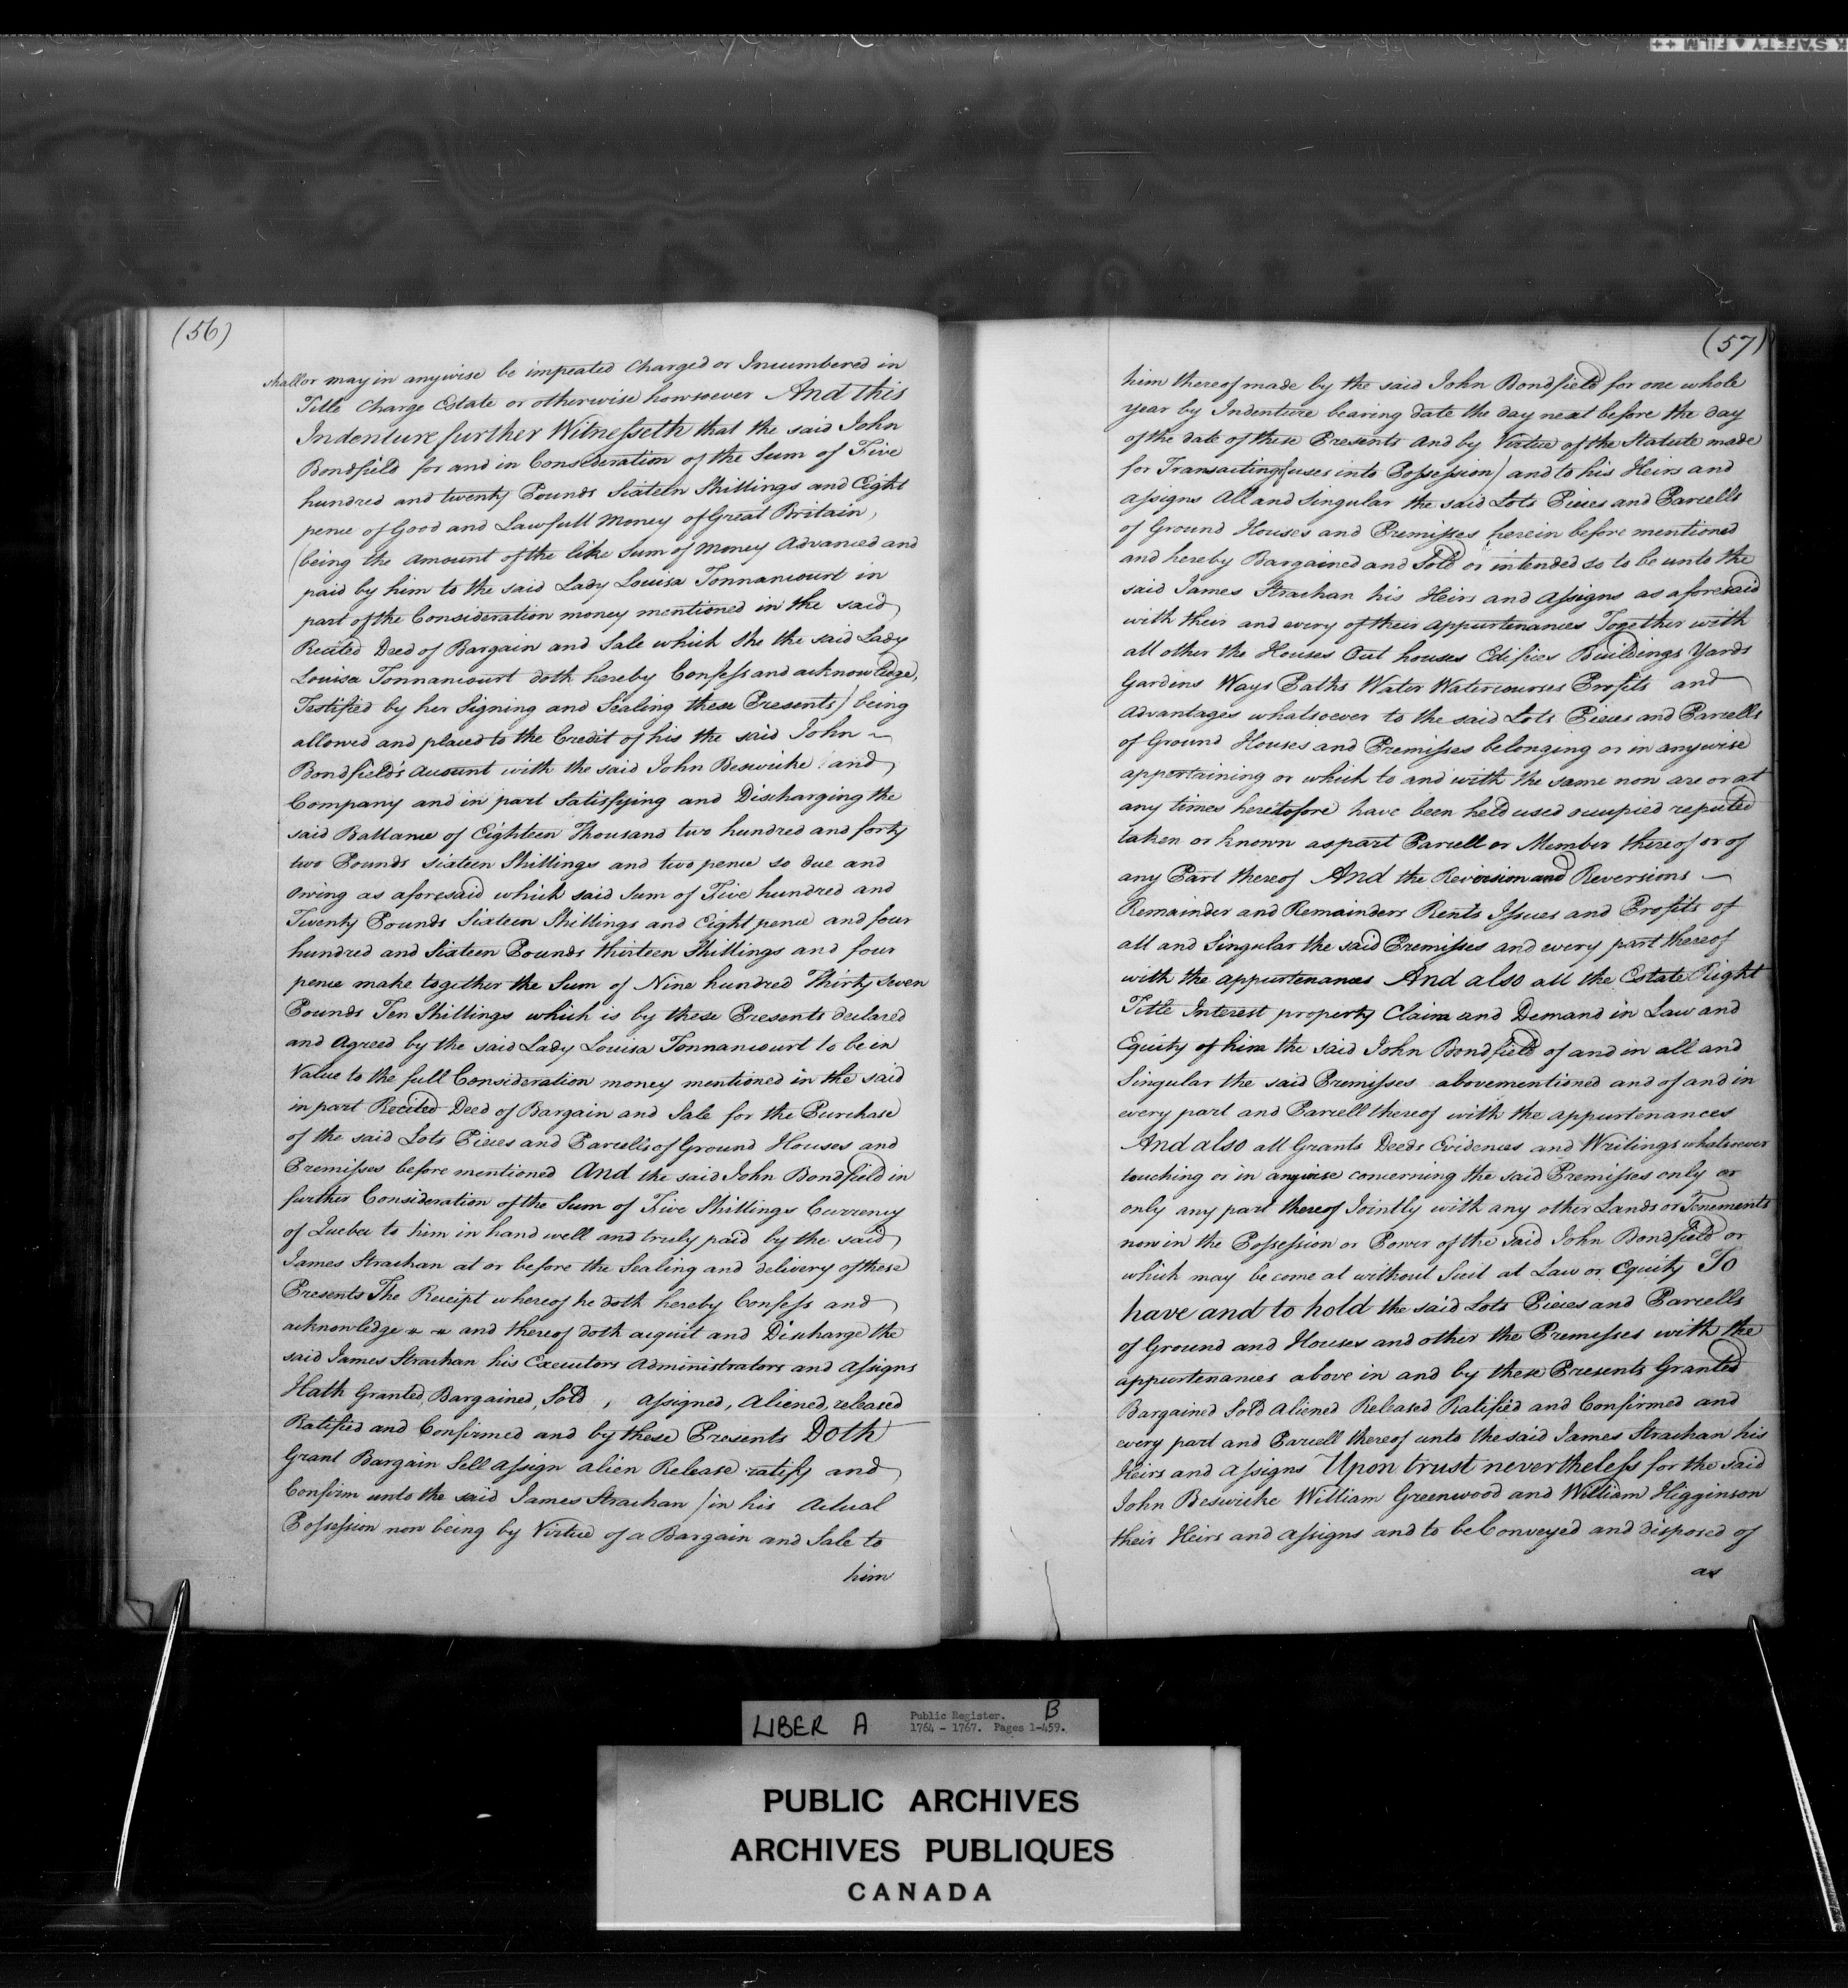 K SAFETY ▲ FILM ++
(56)
shall or may in anywise be impeated Charged or Incumbered in
Title Charge Estate or otherwise howsoever And this
Indenture further Witnesseth that the said John
Bondfield for and in Consideration of the Sum of Five
hundred and twenty Pounds Sixteen Shillings and Eight
pence of Good and Lawfull Money of Great Britain,
(being the Amount of the like Sum of Money Advanced and
paid by him to the said Lady Louisa Tonnancourt in
part of the Consideration money mentioned in the said
Recited Deed of Bargain and Sale which She the said Lady
Louisa Tonnancourt doth hereby Confess and acknowledge,
Testified by her Signing and Sealing these Presents) being
allowed and placed to the Credit of his the said John
Bondfield's Account with the said John Beswicke and
Company and in part Satisfying and Discharging the
said Ballance of Eighteen Thousand two hundred and forty
two Pounds sixteen Shillings and two pence so due and
Owing as aforesaid which said Sum of Five hundred and
Twenty Pounds Sixteen Shillings and Eight pence and four
hundred and Sixteen Pounds thirteen Shillings and four
pence make together the Sum of Nine hundred Thirty Seven
Pounds Ten Shillings which is by these Presents declared
and Agreed by the said Lady Louisa Tonnancourt to be in
Value to the full Consideration money mentioned in the said
in part Recited Deed of Bargain and Sale for the Purchase
of the said Lots Pieces and Parcells of Ground Houses and
Premisses before mentioned And the said John Bondfield in
further Consideration of the Sum of Five Shillings Currency
of Quebec to him in hand well and truly paid by the said
James Strachan at or before the Sealing and delivery of these
Presents The Receipt whereof he doth hereby Confess and
acknowledge and thereof doth acquit and Discharge the
said James Strachan his Executors Administrators and Assigns
Hath Granted, Bargained, Sold, Assigned, Aliened, released
Ratified and Confirmed and by these Presents Doth
Grant Bargain Sell Assign alien Release ratify and
Confirm unto the said James Strachan / in his Actual
Possession now being by Virtue of a Bargain and Sale to
him
(57)
him thereof made by the said John Bondfield for one whole
Year by Indenture bearing date the day next before the day
of the date of these Presents and by Virtue of the Statute made
for Transacting uses into Possession) and to his Heirs and
Assigns All and Singular the said Lots Pieces and Parcells
of Ground Houses and Premisses herein before mentioned
and hereby Bargained and Sold or intended so to be unto the
said James Strachan his Heirs and Assigns as aforesaid
with their and every of their Appurtenances Together with
all other the Houses Out houses Edifices Buildings Yards
Gardens Ways Paths Water Watercourses Profits and
Advantages whatsoever to the said Lots Pieces and Parcells
of Ground Houses and Premisses belonging or in anywise
appertaining or which to and with the same non are or at
any times heretofore have been held used occupied reputed
taken or known as part Parcell or Member thereof or of
any Part thereof And the Reversion and Reversions
Remainder and Remainders Rents Issues and Profits of
all and Singular the said Premisses and every part thereof
with the appurtenances And also all the Estate Right
Title Interest property Claim and Demand in Law and
Equity of him the said John Bondfield of and in all and
Singular the said Premisses abovementioned and of and in
every part and Parcell thereof with the appurtenances
And also all Grants Deeds Evidences and Writings whatsoever
touching or in anywise concerning the said Premisses only or
only any part thereof Jointly with any other Lands or Tenements
now in the Possession or Power of the said John Bondfield or
which may be come at without Suit at Law or Equity To
have and to hold the said Lots Pieces and Parcells
of Ground and Houses and other the Premesses with the
appurtenances above in and by these Presents Granted
Bargained Sold Aliened Released Ratified and Confirmed and
every part and Parcell thereof unto the said James Strachan his
Heirs and Assigns Upon trust nevertheless for the said
John Beswicke William Greenwood and William Higginson
their Heirs and Assigns and to be Conveyed and disposed of
as
LIBER A Public Register. B
1764 - 1767. Pages 1-459.
PUBLIC ARCHIVES
ARCHIVES PUBLIQUES
CANADA